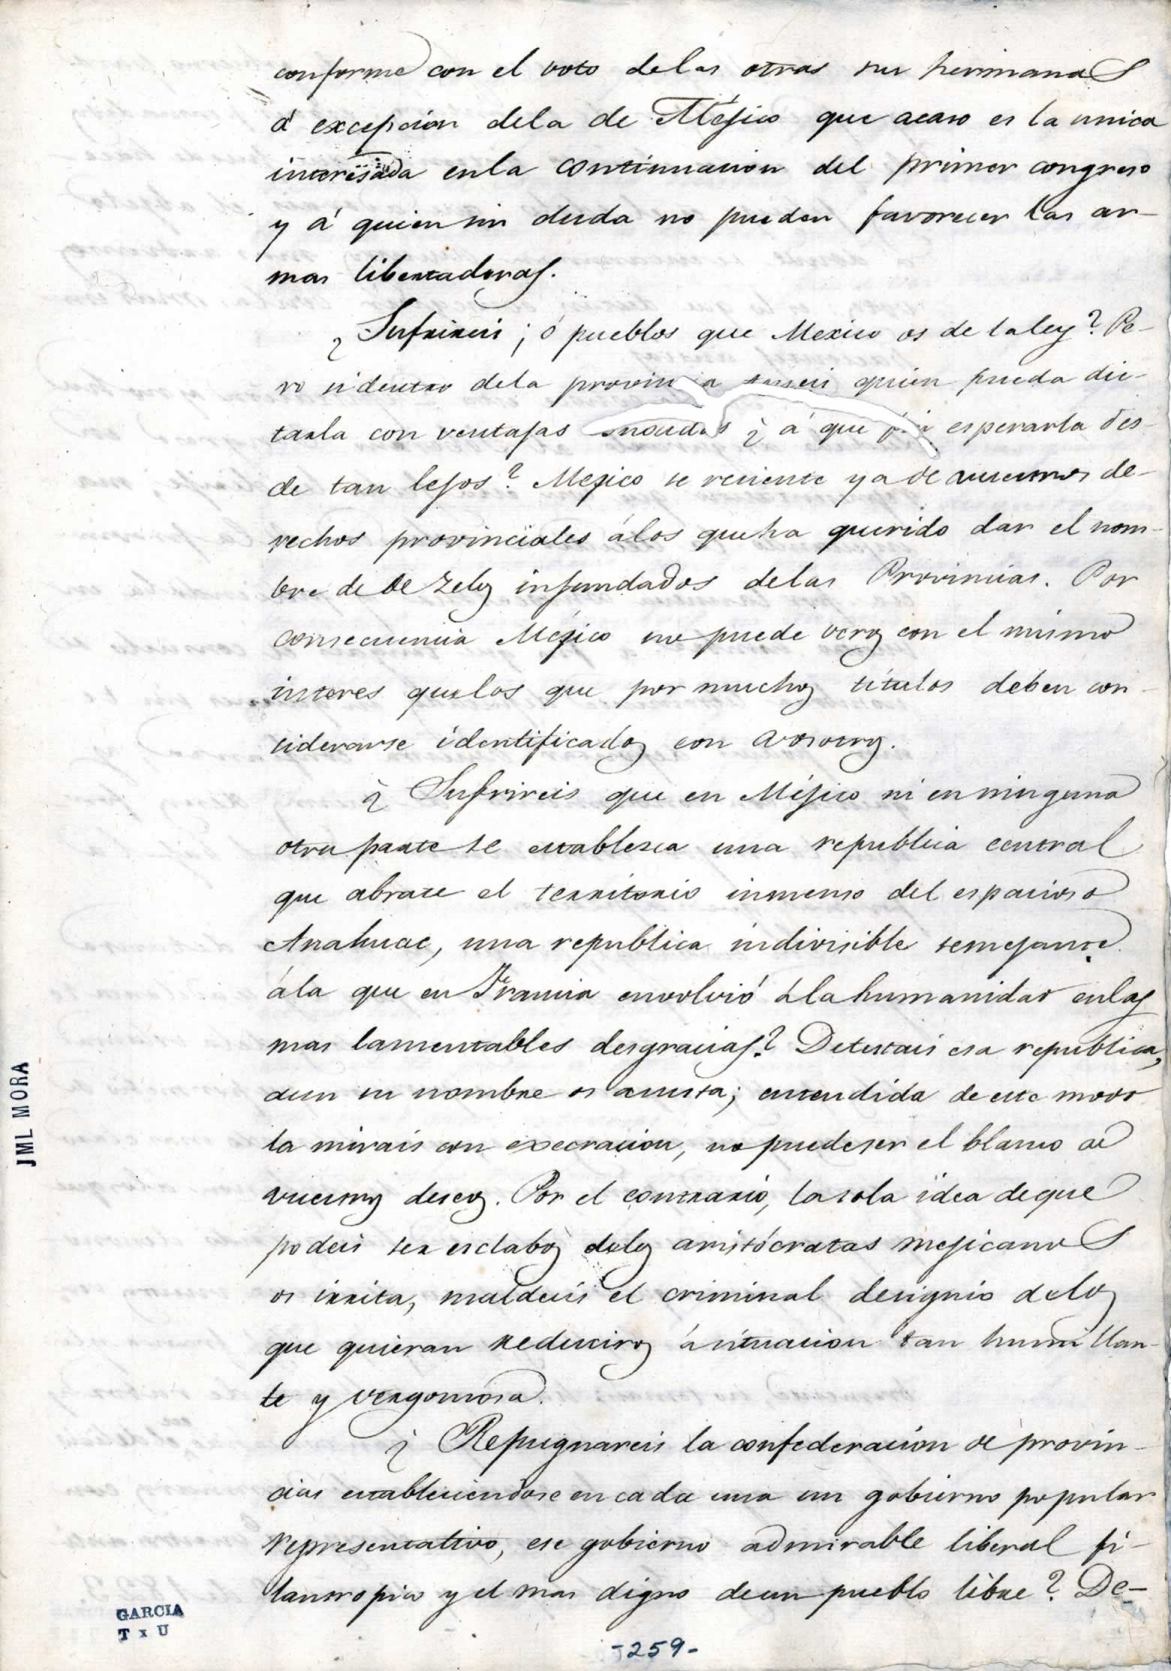 conforme con el voto delas otras sus hermanas
á excepcion dela de Méjico que acaso es la unica
interesada enla continuacion del primer congreso
y á quien sin duda no pueden favorecer las ar-
mas libertadoras.
¿Sufrireis ¡ó pueblos que Mexico os de la ley? Pe-
ro si dentro dela provincia teneis quien pueda dic-
tarla con ventajas ¿á que esperarla des-
de tan lejos? Mejico se resiente ya de vuestros de-
rechos provinciales álos que ha querido dar el nom-
bre de de zelos infundados delas Provincias. Por
consecuencia Méjico no puede veros con el mismo
interes quelos que por muchos titulos deben con-
siderarse identificados con vosotros.
¿Sufrireis que en Méjico ni en ninguna
otra parte se establesca una republica central
que abrace el territorio inmenso del espacioso
Anahuac, una republica indivisible semejante
ála que en Francia envolvió á la humanidad enlas
mas lamentables desgracias? Detestais esa republica,
aun su nombre os asusta; entendida de este modo
la mirais con execracion, no puede ser el blanco de
vuestros deseos. Por el contrario, la sola idea de que
podeis ser esclabos delos aristócratas mejicanos
os irrita, maldecis el criminal designio delos
que quieran reduciros á situacion tan humillan-
te y vergonosa.
¿Repugnareis la confederacion de provin-
cias estableciendose en cada una un gobierno popular
representativo, ese gobierno admirable liberal fi-
lantropico y el mas digno de un pueblo libre? De-
-259-
JML MORA
GARCIA
T x U